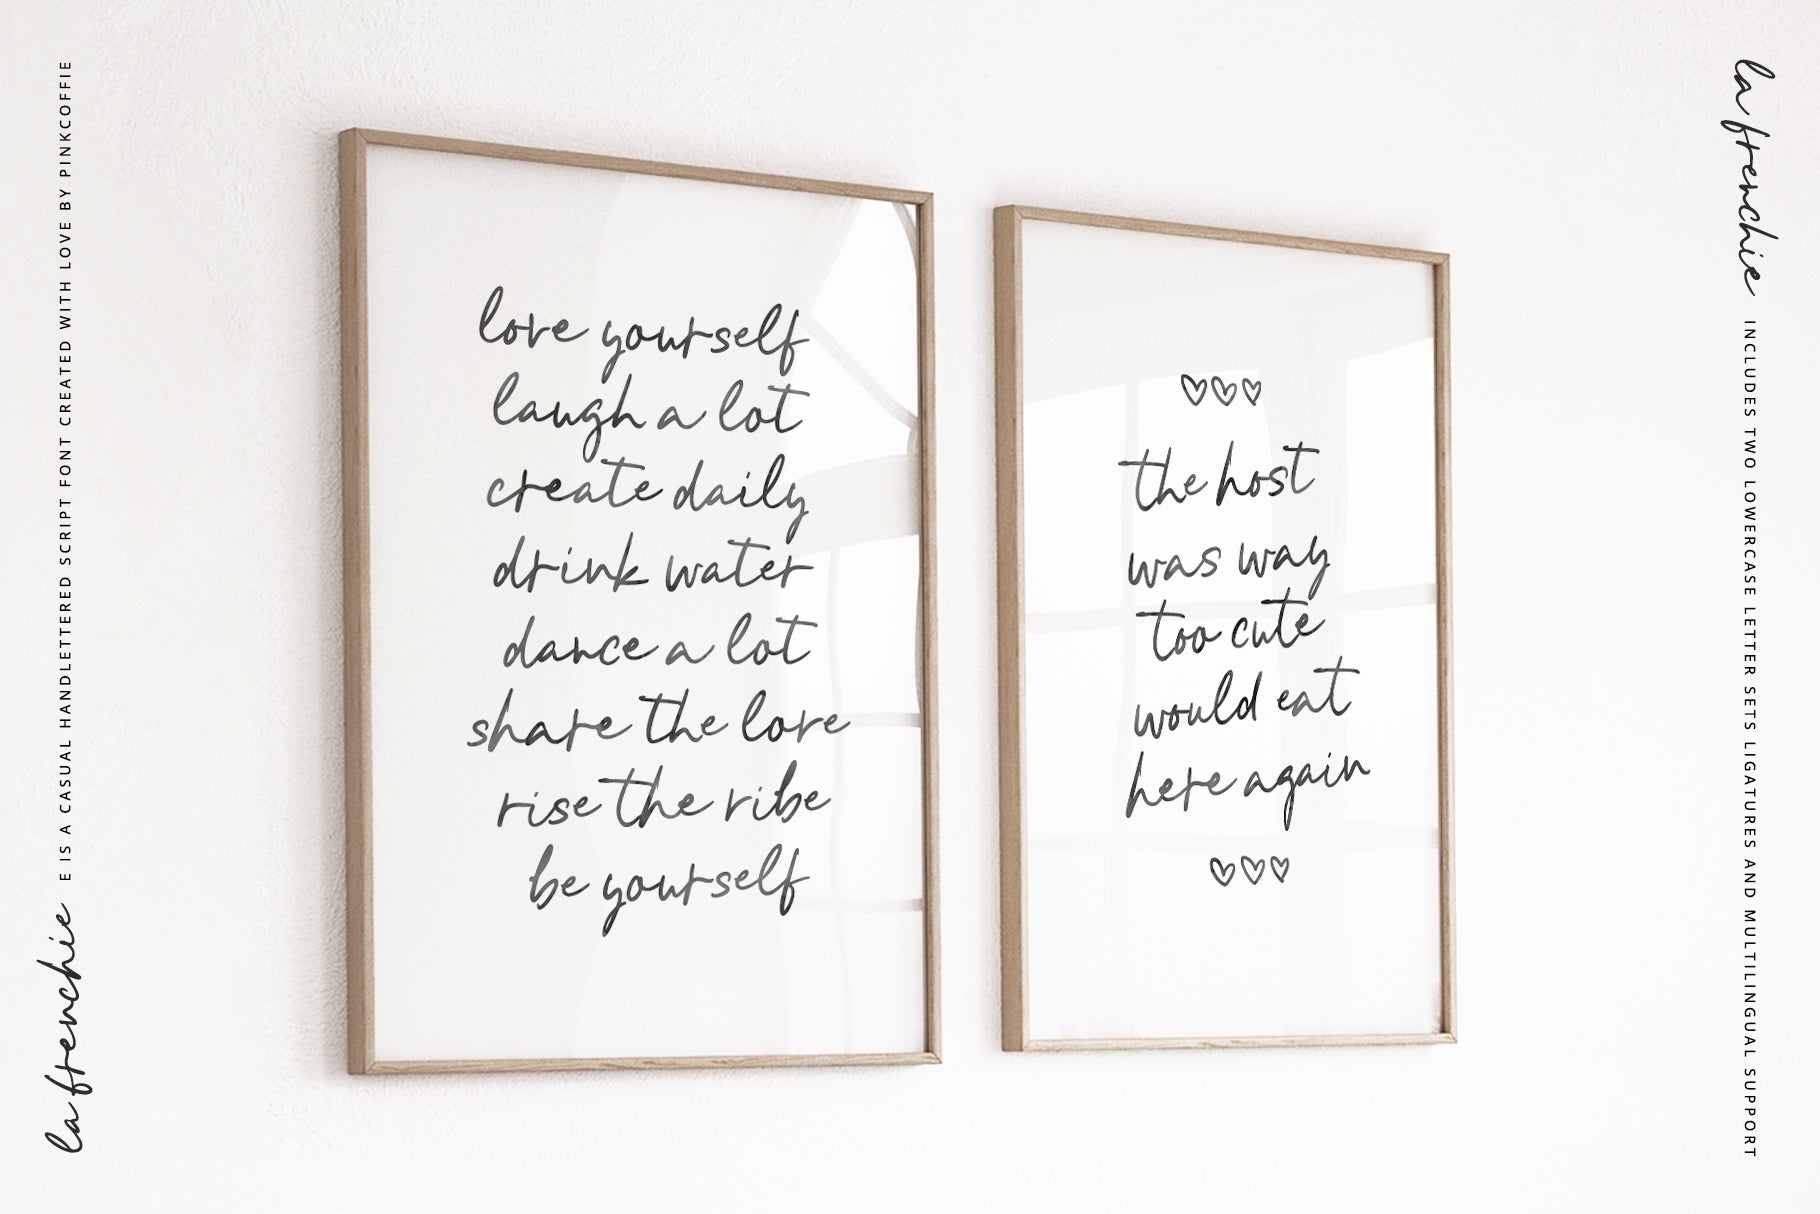 la frenchie E IS A CASUAL HANDLETTERED SCRIPT FONT CREATED WITH LOVE BY PINKCOFFIE
love yourself
laugh a lot
create daily
drink water
dance a lot
share the love
rise the vibe
be yourself
♡♡♡
the host
was way
too cute
would eat
here again
♡♡♡
la frenchie INCLUDES TWO LOWERCASE LETTER SETS LIGATURES AND MULTILINGUAL SUPPORT